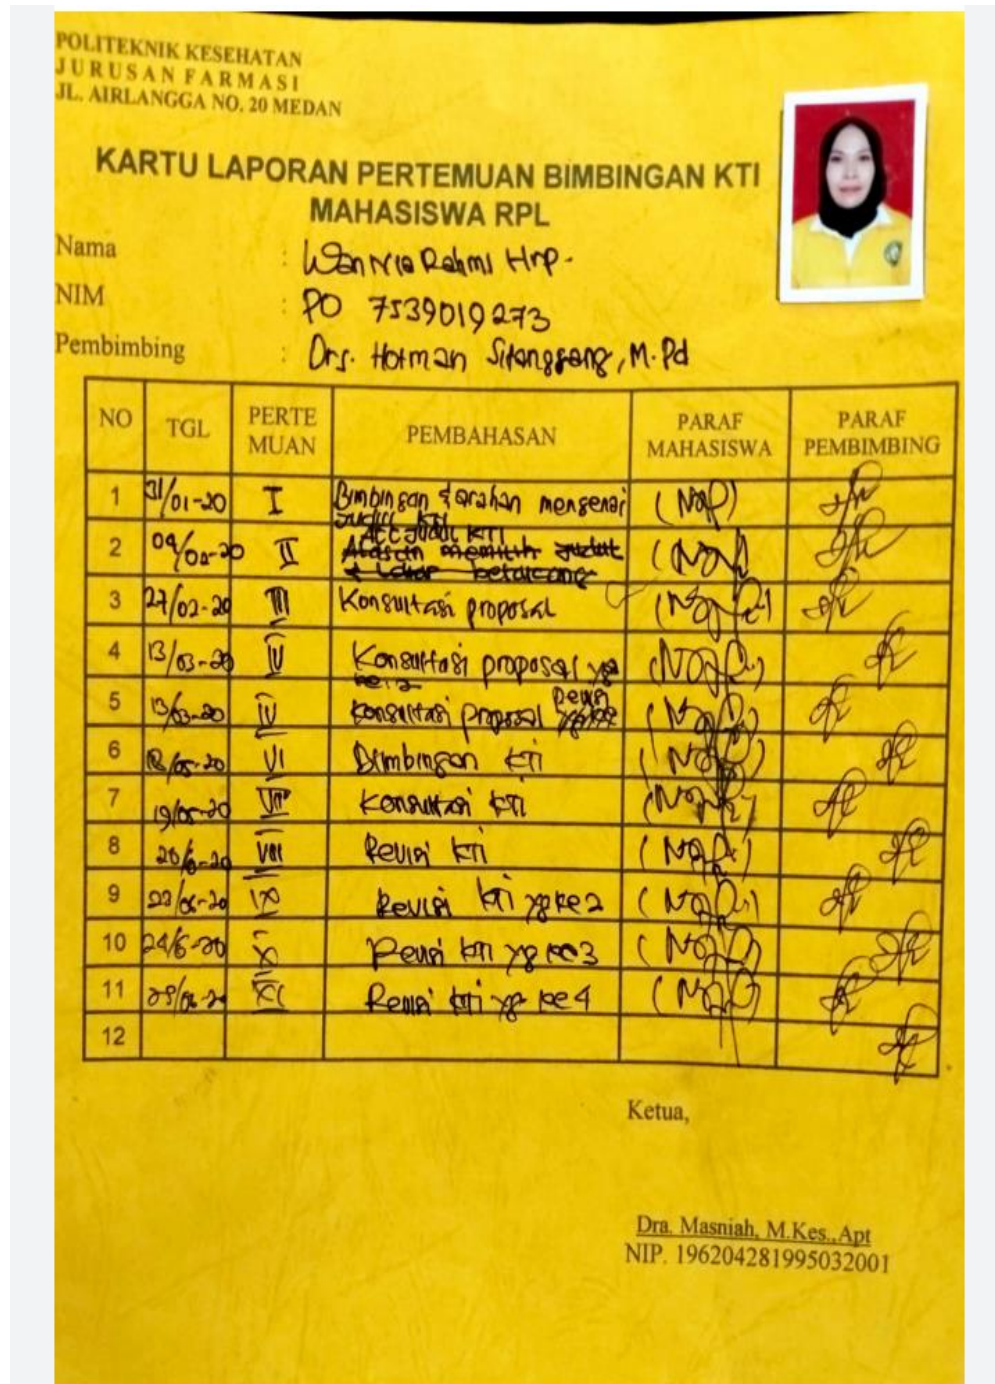 POLITEKNIK KESEHATAN
JURUSAN FARMASI
JL. AIRLANGGA NO. 20 MEDAN
KARTU LAPORAN PERTEMUAN BIMBINGAN KTI
MAHASISWA RPL
Nama : Wan Nia Rahmi Hrp.
NIM : PO 7539019273
Pembimbing : Drs. Hotman Sitanggang, M.Pd
NO TGL PERTE MUAN PEMBAHASAN PARAF MAHASISWA PARAF PEMBIMBING
1 31/01-20 I Bimbingan & arahan mengenai
judul KTI
2 II Acc Judul KTI
Alasan memilih judul
& belakang
3 27/02-20 III Konsultasi proposal
4 13/03-20 IV Konsultasi proposal yg
ke 2
5 13/03-20 IV Konsultasi proposal Revisi
6 18/05-20 VI Bimbingan KTI
7 19/05-20 VII Konsultasi KTI
8 VIII Revisi KTI
9 22/06-20 IX Revisi KTI yg ke 2
10 24/6-20 X Revisi KTI yg ke 3
11 XI Revisi KTI yg ke 4
12
Ketua,
Dra. Masniah, M.Kes.,Apt
NIP. 196204281995032001